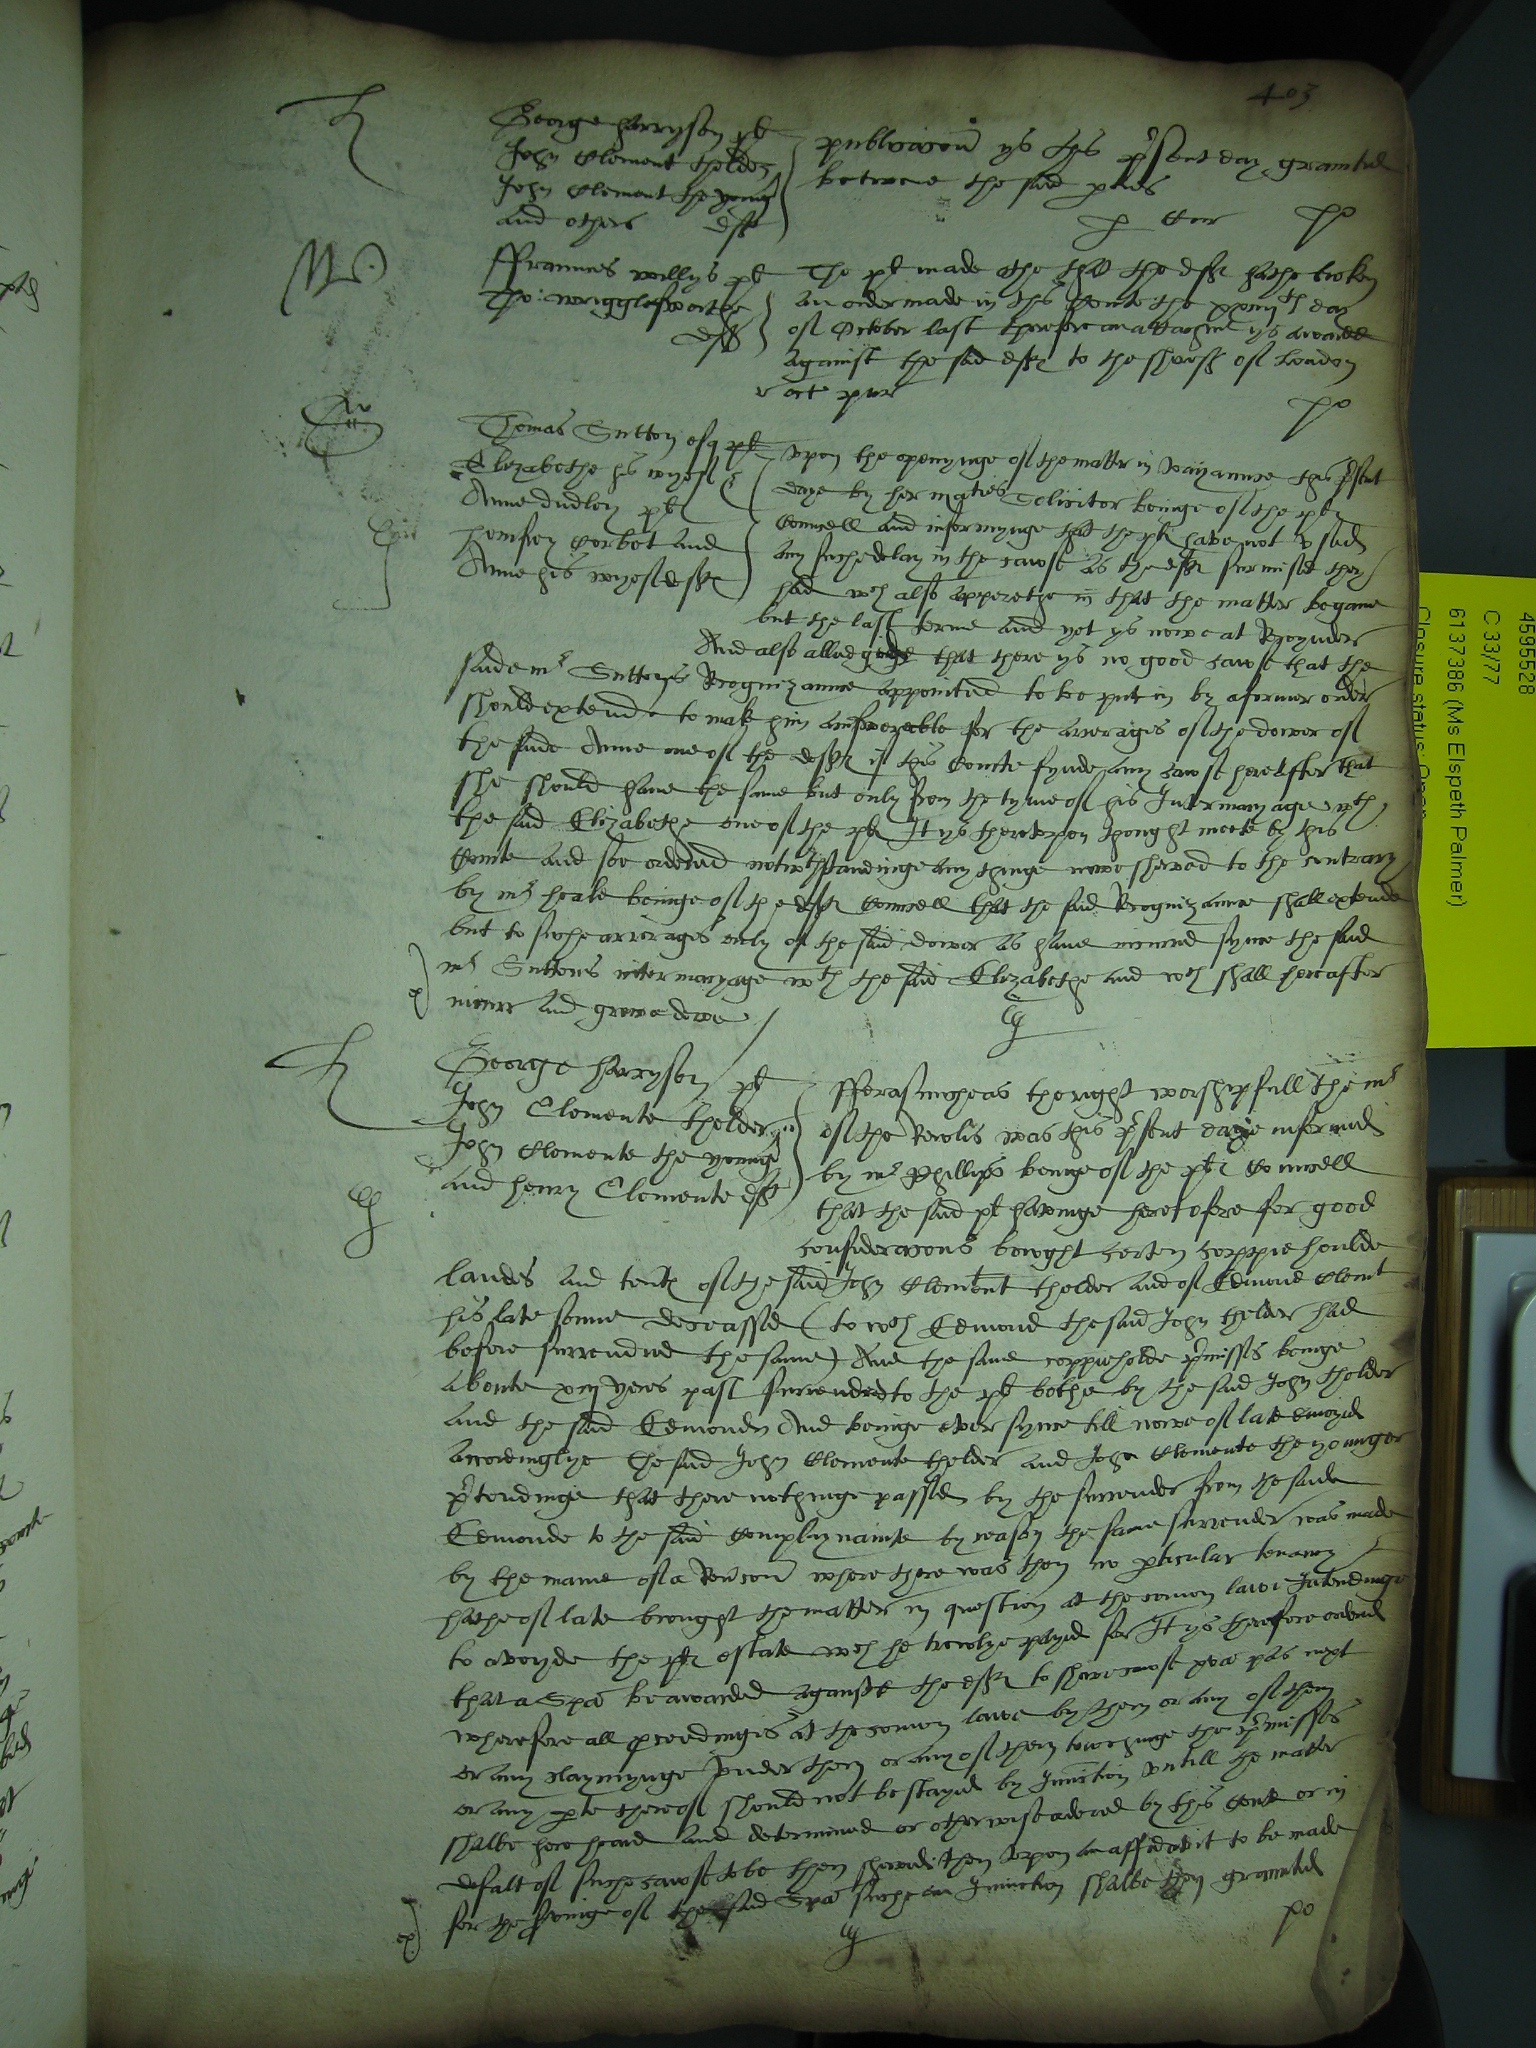 403
George Harryson pl
John Clement thelder
John Clement the yonger
and others deff
publicacion ys this present day graunted
betwene the said parties
per Cur
po
Ffraunces Willys pl
Tho: Wrigglesworthe
deff
The pl made othe that the deff hathe broken
an order made in this Courte the day
of October last therefore an attachmt ys awarded
against the said deff to the shereff of London
po
Thomas Sutton esq pl
Elizabethe his wyef &
Anne Dudley pl
Homfrey Corbet and
Anne his wyef deff
Upon the openynge of the matter in varyannce this present
daye by her maties Solicitor beinge of the pl
Councell and informynge that the pl have not used
any suche delay in the cawse as the deff surmised they
had wch also apperethe in that the matter began
but the last terme and yet ys nowe at Reioynder
And also alledged that there ys no good cawse that the
saide mr Suttons Recognizannce appointed to be put in by a former order
should extende to make him answerable for the arrerages of the dower of
the saide Anne one of the deff if this Courte fynde any cawse hereafter that
she should have the same but only from the tyme of his Intermaryage wth
the said Elizabethe one of the pl It ys thereupon thought meete by this
Courte and soe ordered notwthstandinge any thinge nowe shewed to the contrary
by mr Heale beinge of the deff Councell that the said Recognizannce shall extende
but to suche arrerages only of the said dower as have incurred synce the said
mr Suttons intermaryage wth the said Elizabethe and wch shall hereafter
incurr and growe dewe
George Harryson pl
John Clemente thelder
John Clemente the yonger
and Henry Clemente deff
Fforasmuche as the right worshipfull the mr
of the Rowlls was this present daye informed
by mr Phillips beinge of the pl Councell
that the said pl havinge heretofore for good
consideracons bought certen coppiehoulde
landes and tents of the said John Clement thelder and of Edmond Clemt
his late sonne deceassed (to wch Edmond the said John thelder had
before surrendred the same) And the same coppieholde premisses beinge
aboute xiij yeres past surrendred to the pl bothe by the said John thelder
and the said Edmonde And beinge ever synce till nowe of late enioyed
accordinglye The said John Clemente thelder and John Clemente the yonger
pretendinge that there nothinge passed by the surrender from the saide
Edmonde to the said Complaynante by reason the same surrender was made
by the name of a Revercon where there was then no perticular tenancy
hathe of late brought the matter in question at the comon lawe Intendinge
to avoyde the pl estate wch he trewlye payed for It ys therefore ordered
that a Spa be awarded against the deff to shewe cawse next
wherefore all proceedinges at the comon lawe by them or any of them
or any claymynge under them or any of them towchinge the premisses
or any parte thereof should not be stayed by Iniunction untill the matter
shalbe here heard and determined or otherwise ordered by this Courte or in
defalt of suche cawse to be then shewed then upon an affidavit to be made
for the servinge of the said Spa suche an Iniunction shalbe then graunted
po
4595528
C 33/77
6137386 (Ms Elspeth Palmer)
Closure status: Open